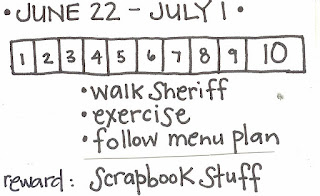 • JUNE 22 - JULY 1 •
1 2 3 4 5 6 7 8 9 10
• walk Sheriff
• exercise
• follow menu plan
reward: Scrapbook Stuff